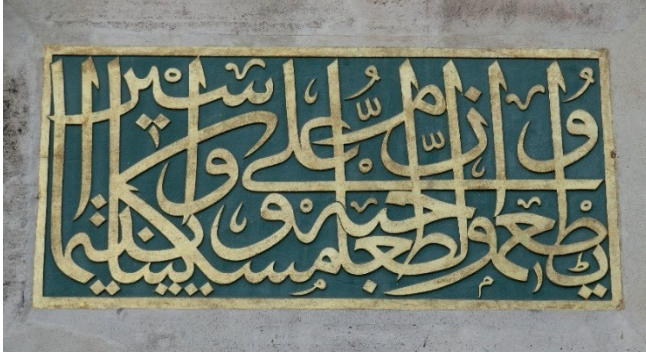 ويطعمون الطعام على حبه مسكينا ويتيما واسيرا